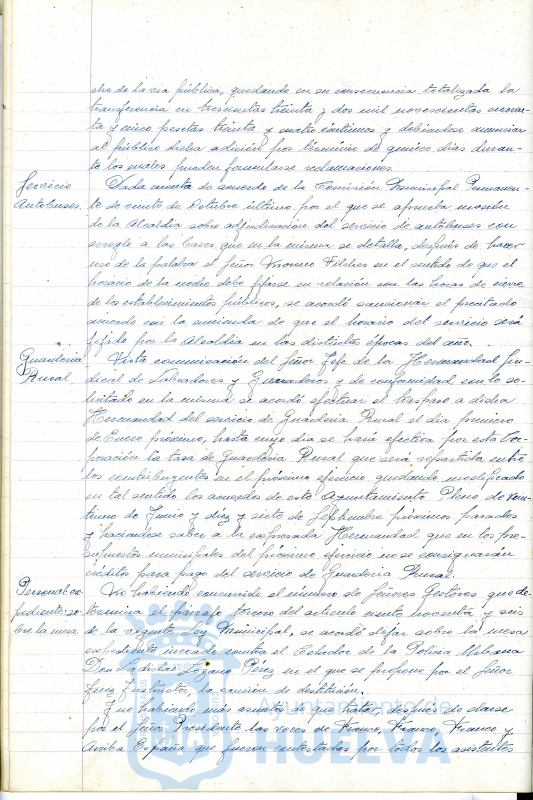 cho de la vía pública, quedando en su consecuencia totalizada la
transferencia en trescientas treinta y dos mil novecientas cuaren-
ta y cinco pesetas treinta y cuatro céntimos y debiéndose anunciar
al público dicha adición por término de quince días duran-
te los cuales pueden formularse reclamaciones.
Servicio
Autobuses.
Dada cuenta de acuerdo de la Comisión Municipal Permanen-
te de veinte de Octubre último por el que se aprueba moción
de la Alcaldía sobre adjudicación del servicio de autobuses con
arreglo a las bases que en la misma se detalla, después de hacer
uso de la palabra el Señor Moreno en el sentido de que el
horario de la noche debe fijarse en relación con las horas de cierre
de los establecimientos públicos, se acordó sancionar el precitado
acuerdo con la enmienda de que el horario del servicio será
fijado por la Alcaldía en las distintas épocas del año.
Guardería
Rural.
Vista comunicación del Señor Jefe de la Hermandad Sin-
dical de Labradores y Ganaderos y de conformidad con lo so-
licitado en la misma se acordó efectuar el traspaso a dicha
Hermandad del servicio de Guardería Rural el día primero
de Enero próximo, hasta cuyo día se hará efectiva por esta Cor-
poración la tasa de Guardería Rural que será repartida entre
los contribuyentes en el próximo ejercicio quedando modificado
en tal sentido los acuerdos de este Ayuntamiento Pleno de vein-
tiuno de Junio y diez y siete de Septiembre próximos pasados
y haciéndose saber a la expresada Hermandad que en los pre-
supuestos municipales del próximo ejercicio no se consignarán
créditos para pago del servicio de Guardería Rural.
Personal: ex-
pediente so-
bre la mesa.
No habiendo concurrido el número de Señores Gestores que de-
termina el párrafo tercero del artículo ciento noventa y seis
de la vigente Ley Municipal, se acordó dejar sobre la mesa
expediente incoado contra el Celador de la Policía Urbana
Don Ladislao Lozano Pérez en el que se propone por el Señor
Juez Instructor, la sanción de destitución.
Y no habiendo más asuntos de que tratar, después de darse
por el Señor Presidente las voces de Franco, Franco, Franco y
Arriba España que fueron contestadas por todos los asistentes
Ayuntamiento de
HUELVA